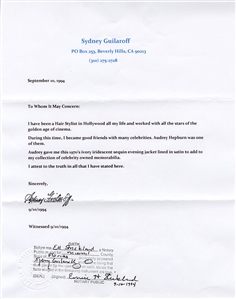 Sydney Guilaroff
PO Box 293, Beverly Hills, CA 90213
(310) 275-2728
September 10, 1994
To Whom it May Concern:
I have been a Hair Stylist in Hollywood all my life and worked with all the stars of the
golden age of cinema.
During this time, I became good friends with many celebrities. Audrey Hepburn was one
of them.
Audrey gave me this 1970's ivory iridescent sequin evening jacket lined in satin to add to
my collection of celebrity owned memorabilia.
I attest to the truth in all that I have stated here.
Sincerely,
Sydney Guilaroff
9/10/1994
Witnessed 9/10/1994
NOTARY PUBLIC
9-10-1994